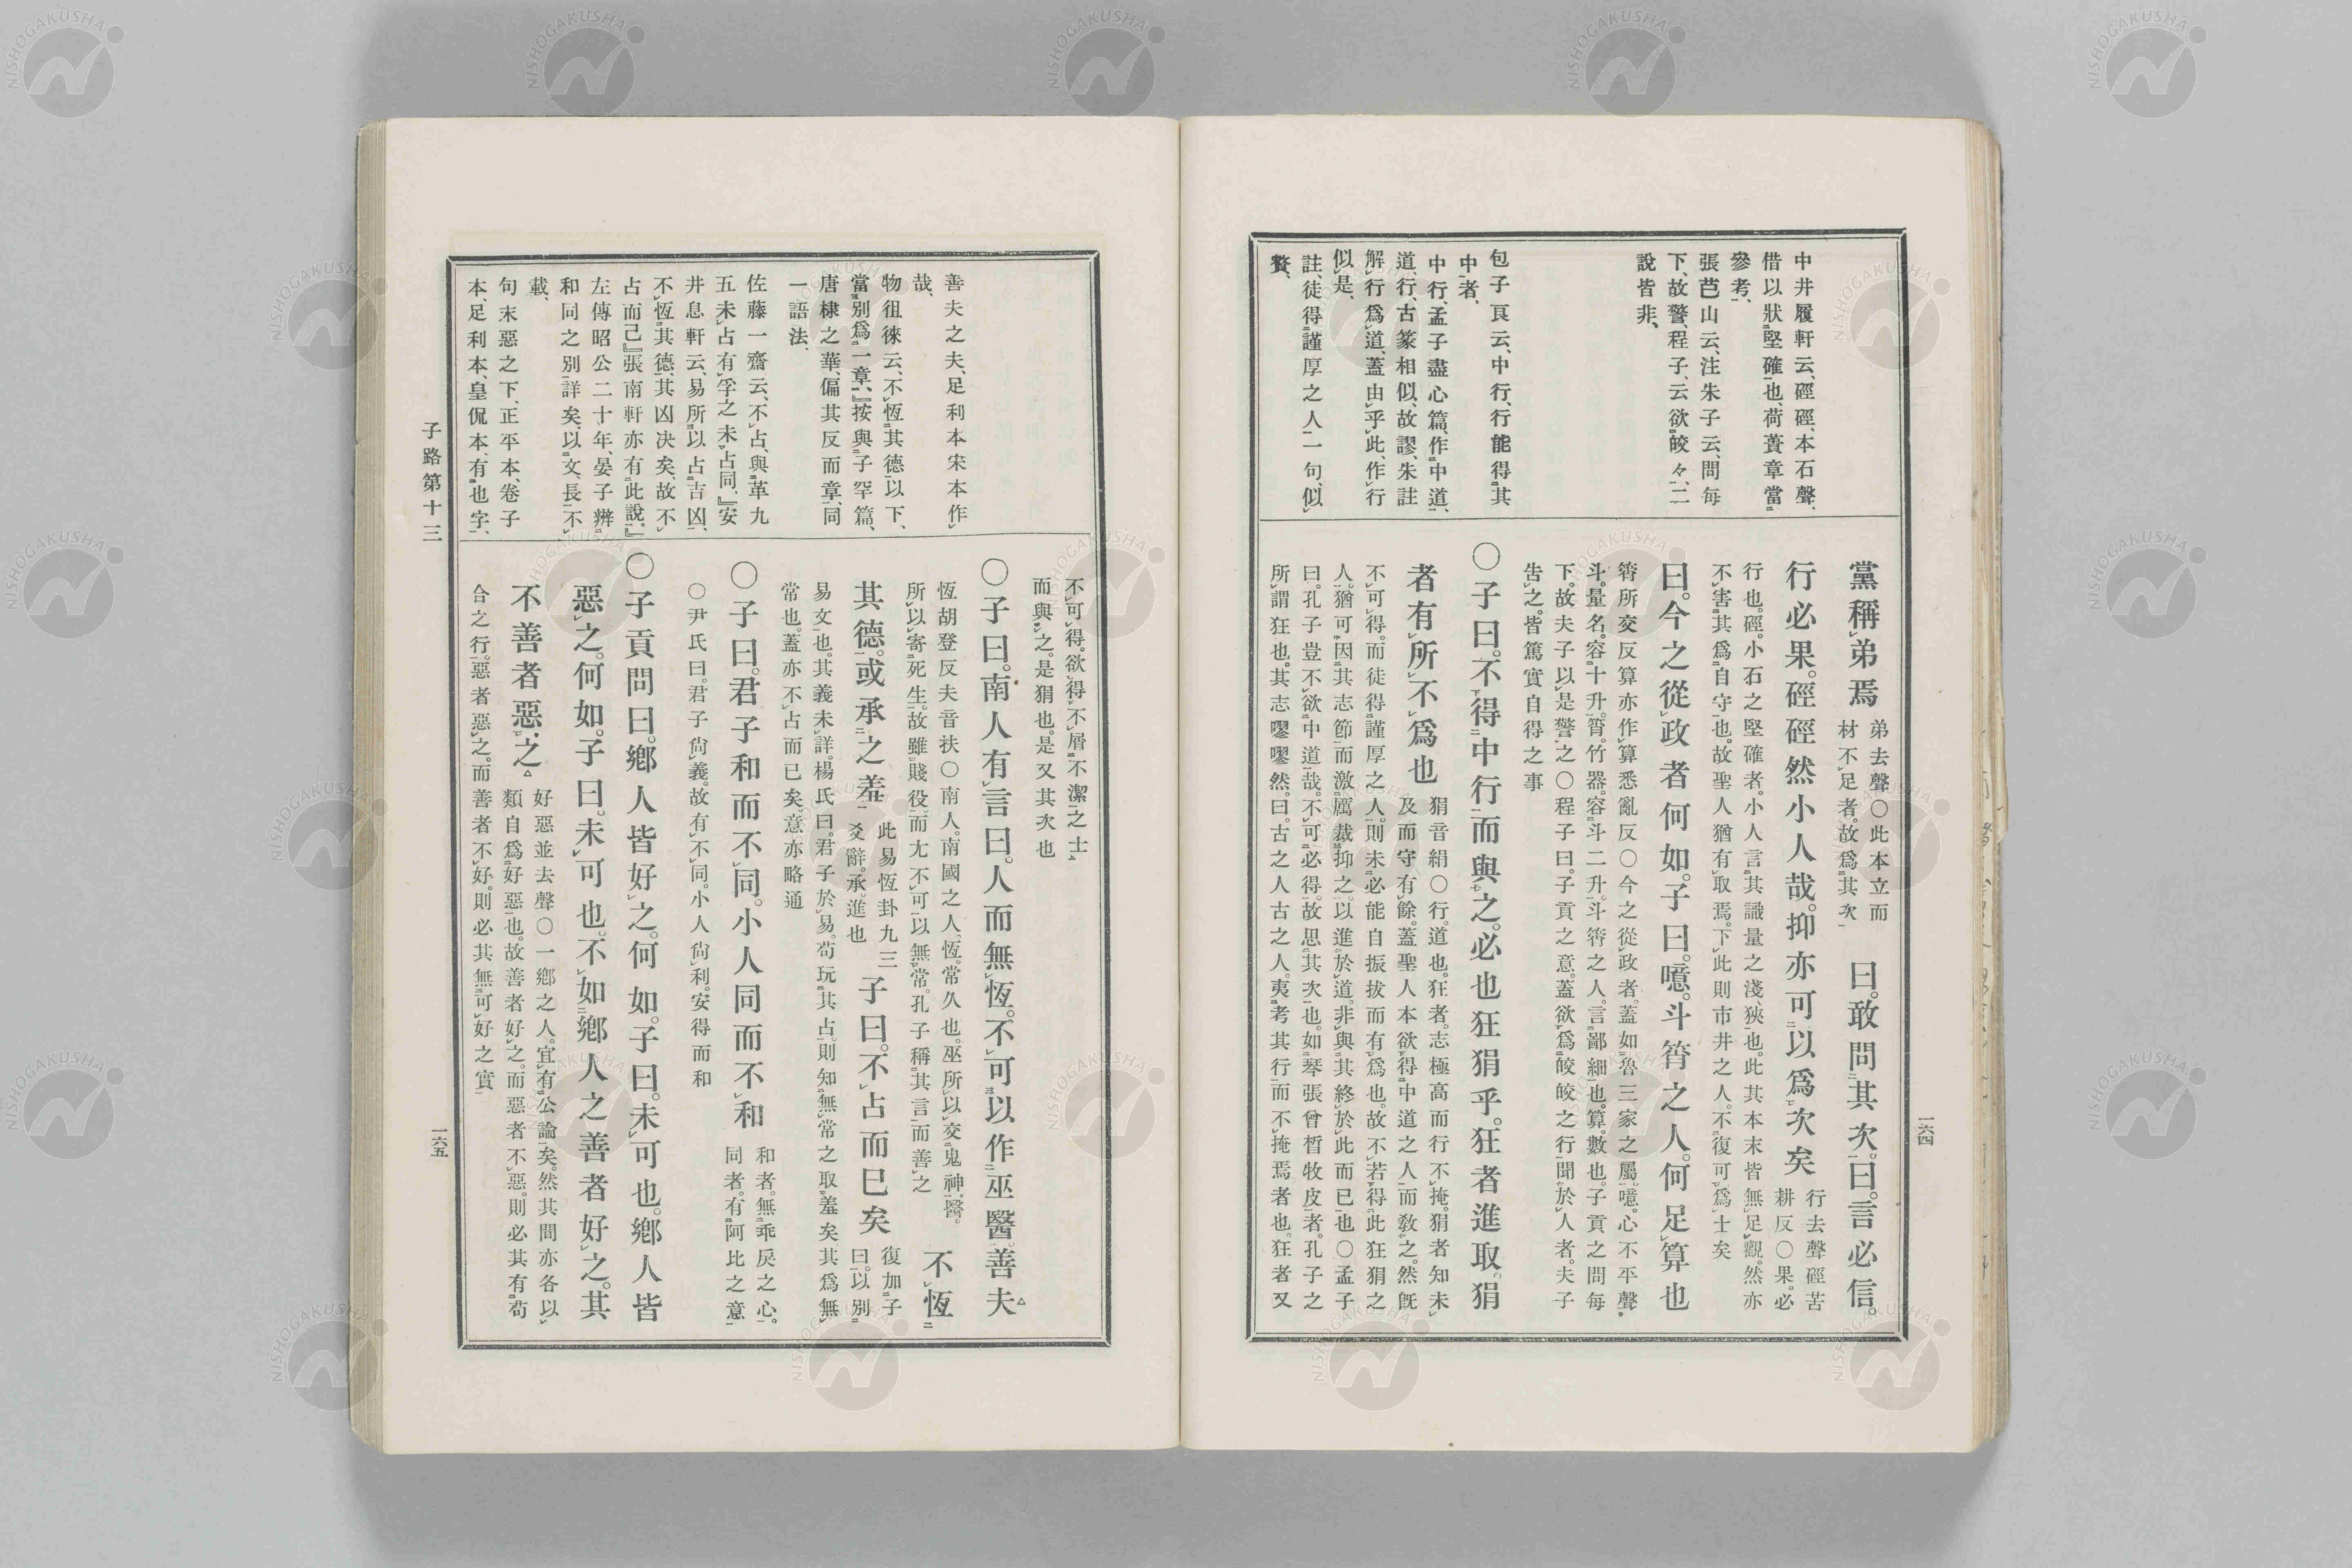 中井履軒云、硜硜、本石聲、
借以狀堅確也、荷蕢章當
參考、
張芭山云、注朱子云、問每
下、故警、程子、云欲皎々、二
說皆非、
包子良云、中行、行能得其
中者、
中行、孟子盡心篇、作中道、
道、行、古篆相似、故謬、朱註
解行爲道、蓋由乎此、作行
似是、
註、徒得謹厚之人一句、似
贅、
黨稱弟焉
弟去聲○此本立而
材不足者。故爲其次
曰。敢問其次。曰。言必信。
行必果。硜硜然小人哉。抑亦可以爲次矣
行去聲硜苦
耕反○果。必
行也。硜。小石之堅確者。小人言其識量之淺狹也。此其本末皆無足觀。然亦
不害其爲自守也。故聖人猶有取焉。下此則市井之人。不復可爲士矣
曰。今之從政者何如。子曰。噫。斗筲之人。何足算也
筲所交反算亦作筭悉亂反○今之從政者。蓋如魯三家之屬。噫。心不平聲。
斗。量名。容十升。筲。竹器。容斗二升。斗筲之人。言鄙細也。算。數也。子貢之問每
下。故夫子以是警之○程子曰。子貢之意。蓋欲爲皎皎之行聞於人者。夫子
告之。皆篤實自得之事
○子曰。不得中行而與之。必也狂狷乎。狂者進取。狷
者有所不爲也
狷音絹○行。道也。狂者。志極高而行不掩。狷者知未
及而守有餘。蓋聖人本欲得中道之人而敎之。然旣
不可得。而徒得謹厚之人。則未必能自振拔而有爲也。故不若得此狂狷之
人。猶可因其志節而激厲裁抑之。以進於道。非與其終於此而已也○孟子
曰。孔子豈不欲中道哉。不可必得。故思其次也。如琴張曾晳牧皮者。孔子之
所謂狂也。其志嘐嘐然。曰。古之人古之人。夷考其行而不掩焉者也。狂者又
一六四
善夫之夫、足利本宋本作
哉、
物徂徠云、不恆其德以下、
當別爲一章、』按與子罕篇、
唐棣之華、偏其反而章、同
一語法、
佐藤一齋云、不占、與革九
五未占有孚之未占同、』安
井息軒云、易所以占吉凶、
不恆其德、其凶決矣、故不
占而已』張南軒亦有此說。』
左傳昭公二十年、晏子辨
和同之別詳矣、以文長不
載、
句末惡之下、正平本、卷子
本、足利本、皇侃本、有也字、
不可得。欲得不屑不潔之士
而與之。是狷也。是又其次也
○子曰。南人有言曰。人而無恆。不可以作巫醫。善夫
恆胡登反夫音扶○南人。南國之人。恆。常久也。巫所以交鬼神。醫。
所以寄死生。故雖賤役。而尤不可以無常。孔子稱其言而善之
不恆
其德。或承之羞
此易恆卦九三
爻辭。承進也
子曰。不占而已矣
復加子
曰。以別
易文也。其義未詳。楊氏曰。君子於易。苟玩其占。則知無常之取羞矣其爲無
常也。蓋亦不占而已矣。意亦略通
○子曰。君子和而不同。小人同而不和
和者。無乖戾之心。
同者。有阿比之意
○尹氏曰。君子尙義。故有不同。小人尙利。安得而和
○子貢問曰。鄕人皆好之。何如。子曰。未可也。鄕人皆
惡之。何如。子曰。未可也。不如鄕人之善者好之。其
不善者惡之
好惡並去聲○一鄕之人。宜有公論矣。然其間亦各以
類自爲好惡也。故善者好之。而惡者不惡。則必其有苟
合之行。惡者惡之。而善者不好。則必其無可好之實
子路第十三
一六五
NISHOGAKUSHA